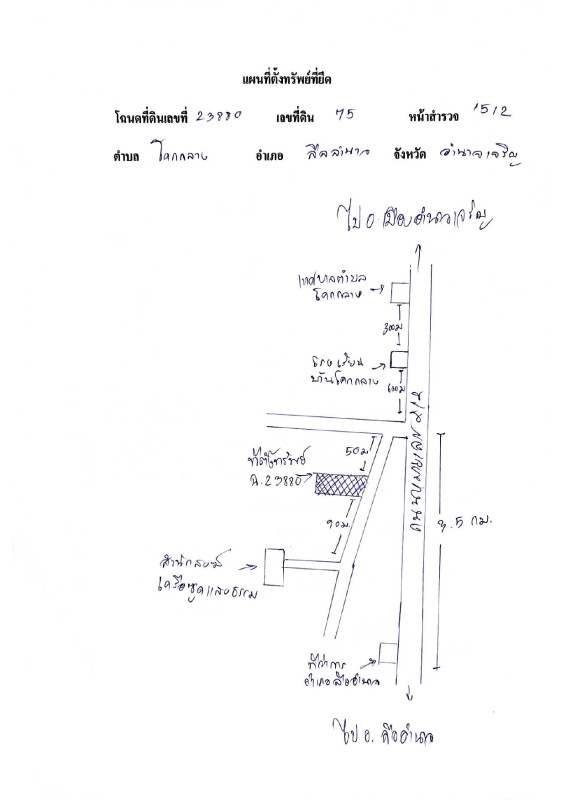 แผนที่ตั้งทรัพย์ที่ยึด
โฉนดที่ดินเลขที่ 23880 เลขที่ดิน 75 หน้าสำรวจ 1512
ตำบล โคกกลาง อำเภอ ลืออำนาจ จังหวัด อำนาจเจริญ
ไป อ.เมืองอำนาจเจริญ
เทศบาลตำบล
โคกกลาง
300ม
โรงเรียน
บ้านโคกกลาง
600ม
ถนนหมายเลข 212
50ม
ที่ตั้งทรัพย์
ฉ.23880
90ม.
5 กม.
สำนักสงฆ์
ที่ว่าการ
อำเภอลืออำนาจ
ไป อ. ลืออำนาจ